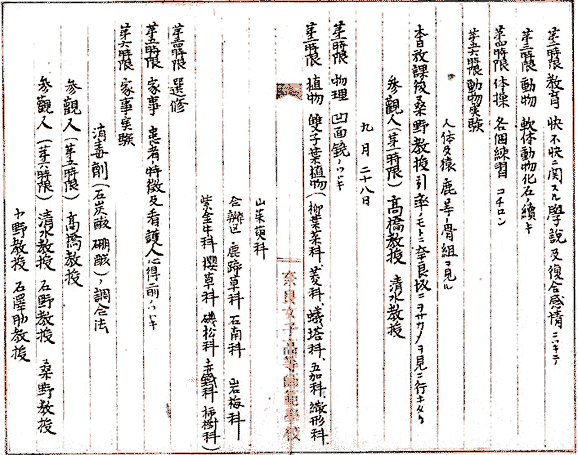 第二時限 教育 快不快ニ関スル學説及復合感情ニツキテ
第三時限 動物 軟体動物化石ノ續キ
第四時限 体操 各個練習 コチロン
第五六時限 動物実験
人体及猿、鹿等ノ骨組ヲ見ル
本日放課後桑野教授引率ノモトニ奈良坂ニヲサカノヲ見ニ行キタリ
参観人(第一時限) 髙橋教授 清水教授
九月二十八日
第一時限 物理 凹面鏡ノツヾキ
第二時限 植物 雙子葉植物(柳葉菜科、菱科、蟻塔科、五加科、繖形科、
山茱萸科
合瓣区 鹿蹄草科 石南科 岩梅科
紫金牛科 櫻草科 磯松科 柿樹科)
第四時限 選修
第五時限 家事 患者ノ特徴及看護人心得ノ前ノツヾキ
第六時限 家事実験
消毒劑(石炭酸 硼酸)ノ調合法
参観人(第五時限) 髙橋教授
参観人(第六時限) 清水教授 石野教授 桑野教授
中野教授 石澤助教授
奈良女子高等師範學校